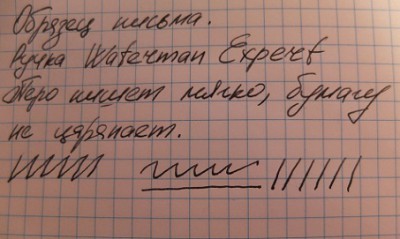 Образец письма.
Ручка Waterman Expert
Перо пишет мягко, бумагу
не царапает.